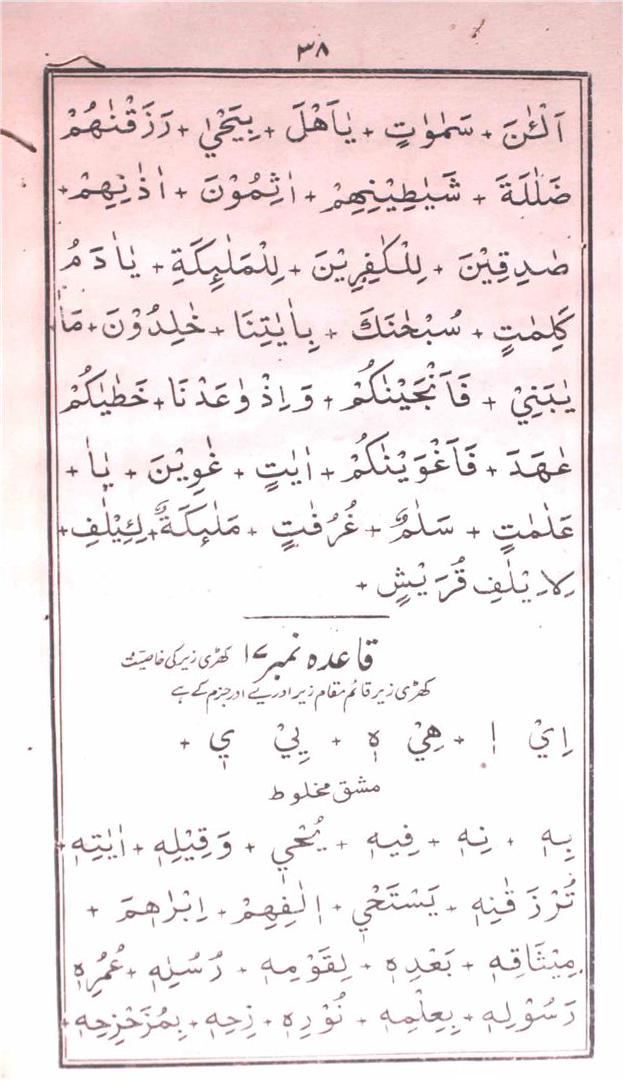 ۳۸
اَلْـٰٔنَ + سَمٰوٰتٍ + یٰاَهْلَ + بِیَحْیٰ + رَزَقْنٰهُمْ
ضَلٰلَةَ + شَیٰطِیْنِهِمْ + اٰثِمُوْنَ + اٰذٰنِهِمْ +
صٰدِقِیْنَ + لِلْكٰفِرِیْنَ + لِلْمَلٰٓئِكَةِ + یٰاٰدَمُ
كَلِمٰتٍ + سُبْحٰنَكَ + بِاٰیٰتِنَا + خٰلِدُوْنَ + مَاٰ
یٰبَنِیْ + فَاَنْجَیْنٰكُمْ + وَاِذْ وٰعَدْنَا + خَطٰیٰكُمْ
عٰهَدَ + فَاَغْوَیْنٰكُمْ + اٰیٰتٍ + غٰوِیْنَ + یٰاٰ +
عَلٰمٰتٍ + سَلٰمٌ + غُرُفٰتٍ + مَلٰٓئِكَةٌ + لِئِیْلٰفِ +
لِاِیْلٰفِ قُرَیْشٍ +
قاعدہ نمبر ۱۷ کھڑی زیر کی خاصیّت
کھڑی زیر قائم مقام زیر اور یے اور جزم کے ہے
اِیْ اٖ + هِیْ هٖ + یِیْ یٖ +
مشق مخلوط
بِهٖ + نِهٖ + فِیهٖ + یُحْیٖ + وَقِیْلِهٖ + اٰیٰتِهٖ +
تُرْزَقٰنِهٖ + یَسْتَحْیٖ + اٖلٰفِهِمْ + اِبْرٰهٖمَ +
مِیْثَاقِهٖ + بَعْدِهٖ + لِقَوْمِهٖ + رُسُلِهٖ + عُمُرِهٖ
رَسُوْلِهٖ + بِعِلْمِهٖ + نُوْرِهٖ + زِحِهٖ + بِمُزَحْزِحِهٖ +